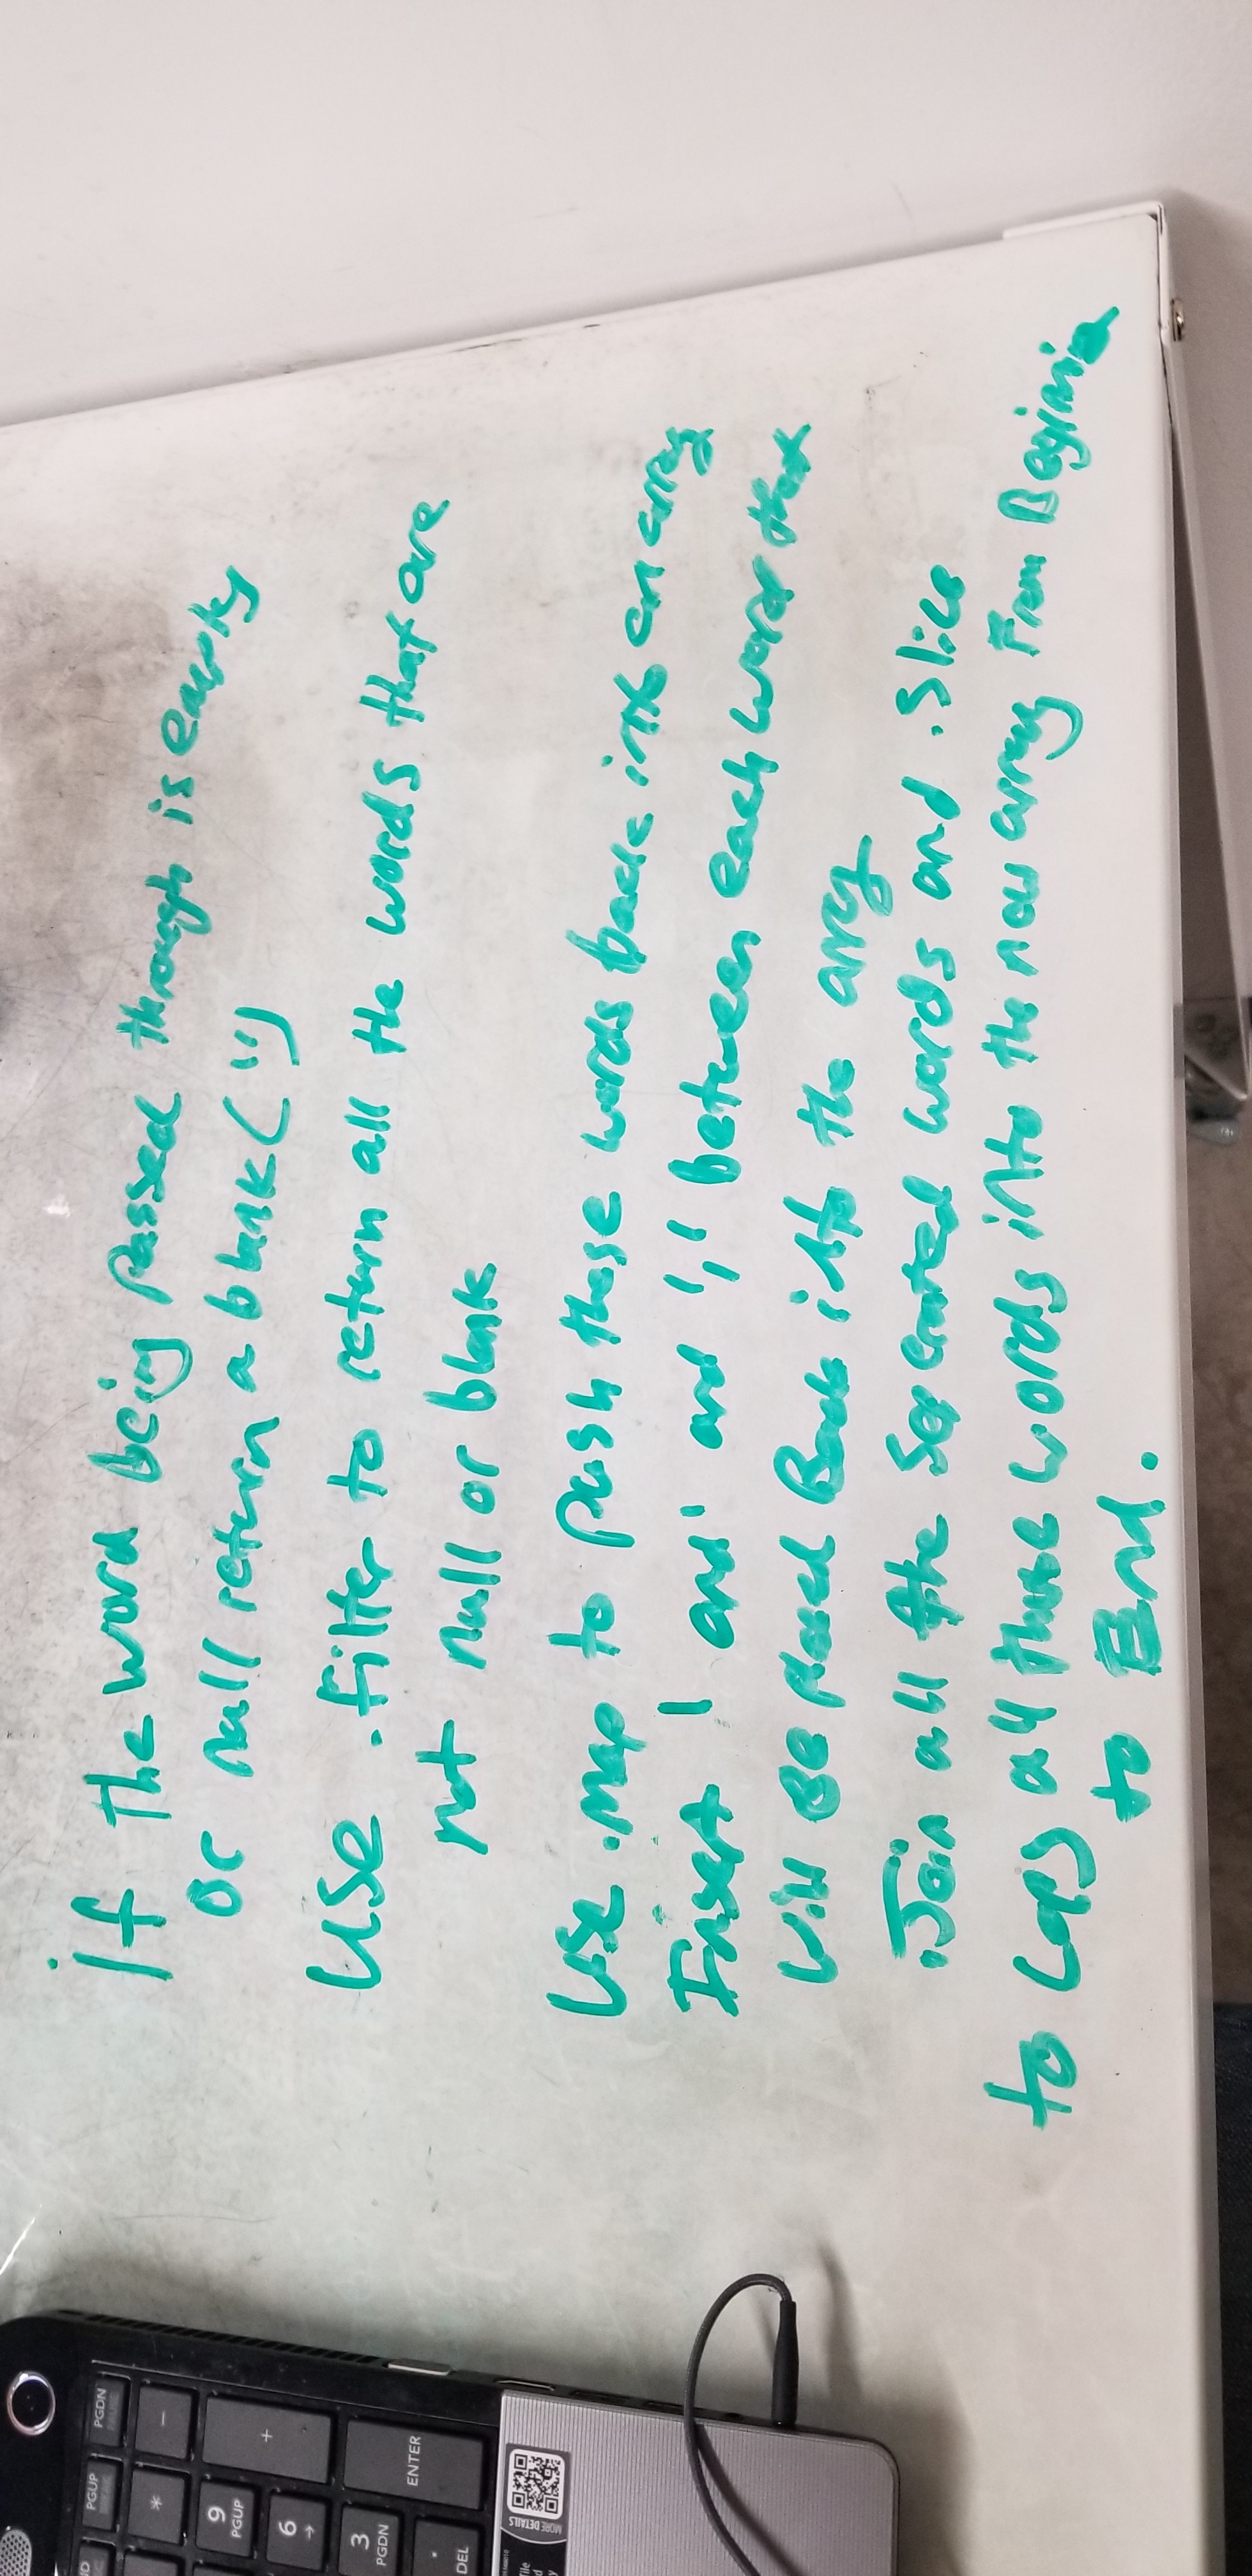 if the word being passed through is empty
or null return a blank ('')
Use .filter to return all the words that are
not null or blank
Use .map to push these words back into an array
Insert 1 'and' and ',' between each word that
will Be placed Back into the array
.Join all the Seperated words and .Slice
to Copy all these words into the new array From Begining
to End.
PGDN
PGUP
-
+
*
9
PGUP
6
→
3
PGDN
ENTER
.
DEL
MORE DETAILS